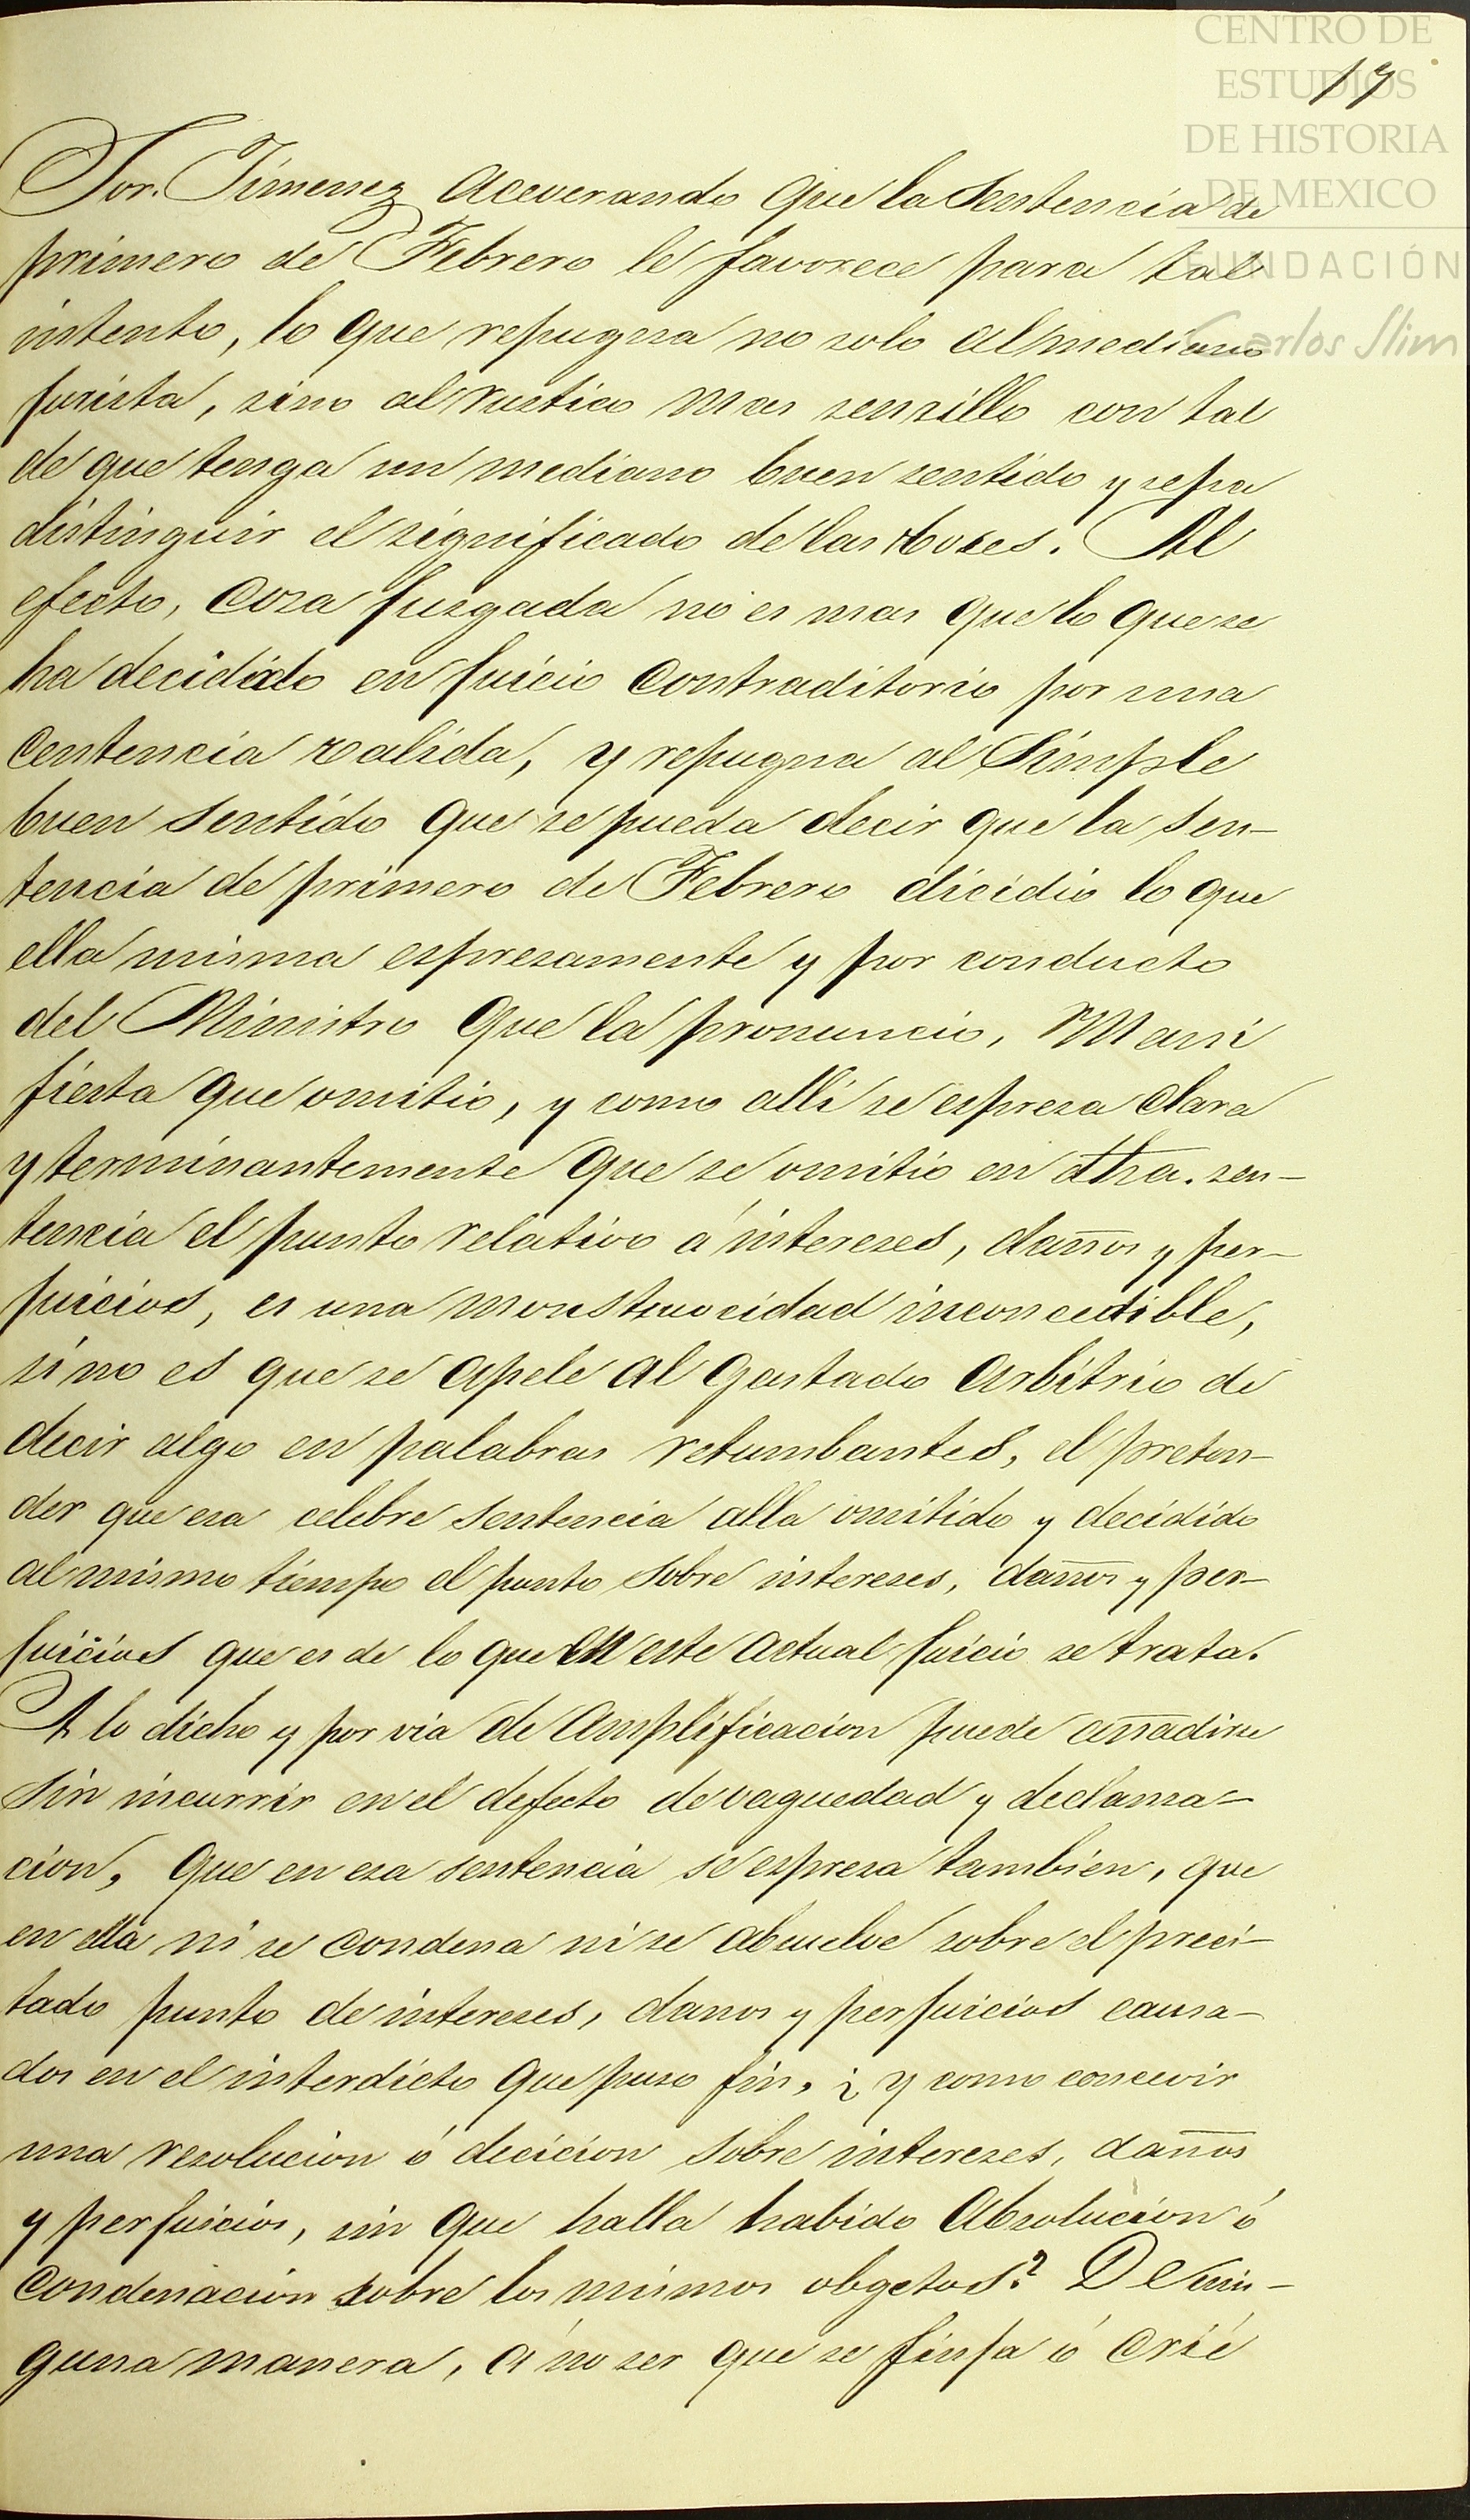 CENTRO DE
ESTUDIOS
DE HISTORIA
DE MEXICO
FUNDACIÓN
Carlos Slim
17
Sor. Jimenez aceverando que la Sentencia de
primero de Febrero le favorece para tal
intento, lo que repugna no solo al mediano
jurista, sino al rustico mas senzillo con tal
de que tenga un mediano buen sentido y sepa
distinguir el significado de las voces. Al
efecto, Cosa juzgada no es mas que lo que se
ha decidido en juicio Contraditorio por una
Centencia valida, y repugna al Simple
buen sentido que se pueda decir que la sen-
tencia de primero de Febrero dicidio lo que
ella misma espresamente y por conducto
del Ministro que la pronuncio, Mani
fiesta que omitio, y como alli se espresa clara
y terminantemente que se omitio en dha. sen-
tencia el punto relativo á interezes, daños y per-
juicios, es una monstruocidad inconcedible,
sino es que se apele al gastado arbitrio de
decir algo en palabras retumbantes, el preten-
der que esa celebre sentencia alla omitido y decidido
al mismo tiempo el punto sobre interezes, daños y per-
juicios que es de lo que en este actual juicio se trata.
A lo dicho y por via de amplificacion puede añadirse
sin incurrir en el defecto de vaguedad y declama-
cion, que en esa sentencia se espresa tambien, que
en ella ni se condena ni se absuelve sobre el preci-
tado punto de interezes, danos y perjuicios causa-
dos en el interdicto que puso fin, ¿y como concevir
una resolucion ó decicion sobre interezes, daños
y perjuicios, sin que halla habido Absolucion ó
Condenacion sobre los mismos obgetos? De nin-
guna manera, á no ser que se finja ó crié